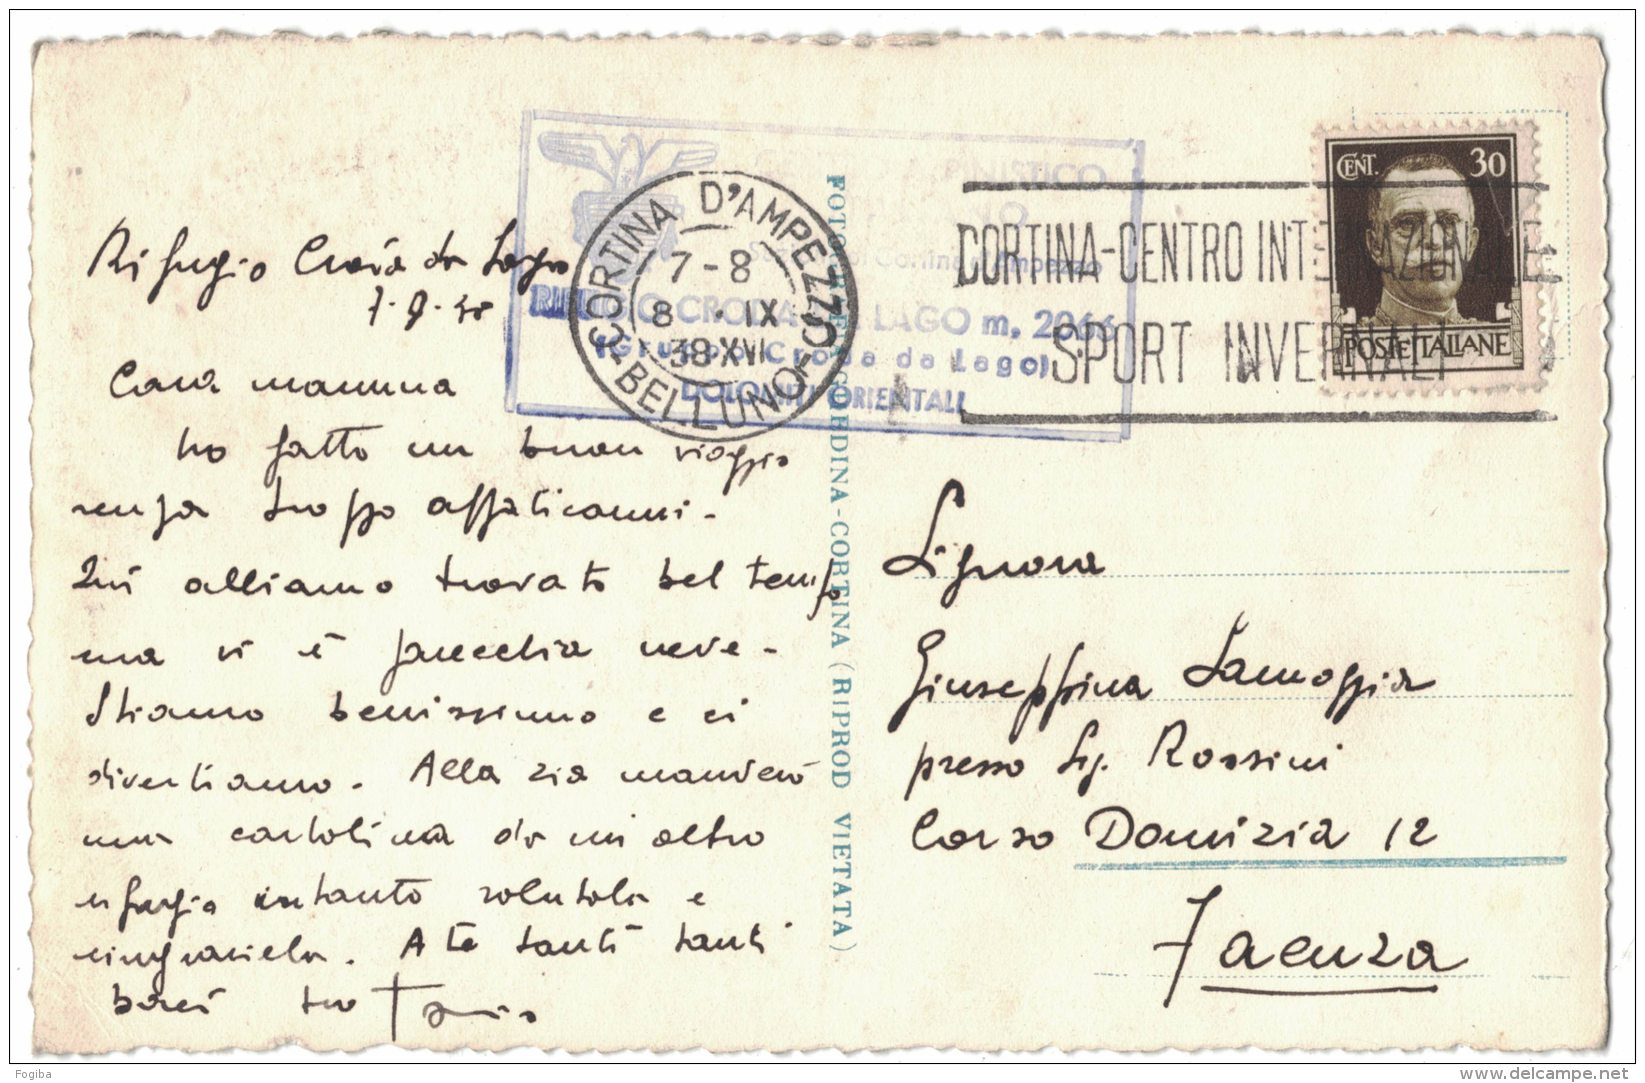 Rifugio Croda da Lago
7-9-38
Cara mamma
ho fatto un buon viaggio
senza troppo affaticarmi.
Qui abbiamo trovato bel tempo
ma vi è parecchia neve.
Stiamo benissimo e ci
divertiamo. Alla zia manderò
una cartolina da un altro
rifugio intanto salutala e
ringraziala. A te tanti tanti
baci tuo
FOTO GHEDINA-CORTINA (RIPROD VIETATA)
CORTINA D'AMPEZZO
7-8
8 · IX
38 XVI
BELLUNO
RIFUGIO CRODA DA LAGO m. 2066
(Gruppo Croda da Lago)
DOLOMITI ORIENTALI
CORTINA-CENTRO INTERNAZIONALE
SPORT INVERNALI
CENT. 30
POSTE ITALIANE
Signora
Giuseppina Lamoggia
presso Sig. Rossini
Corso Domizia 12
Faenza
Fogiba
delcampe.net